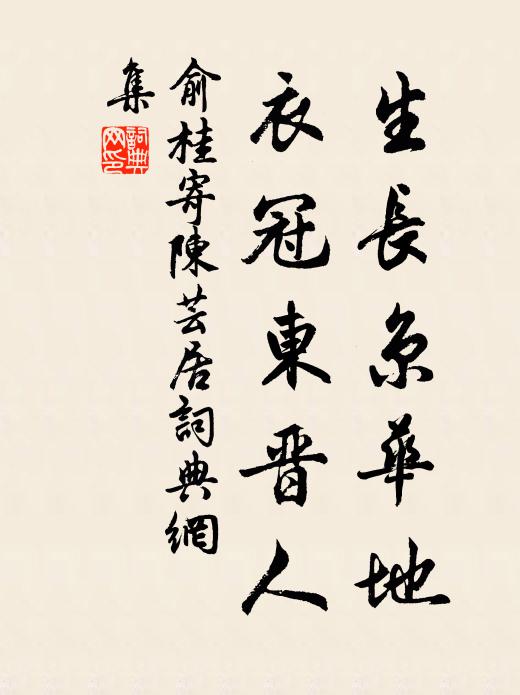 生長京華地
衣冠東晉人
俞桂寄陳芸居詞典網
集
詞典網印